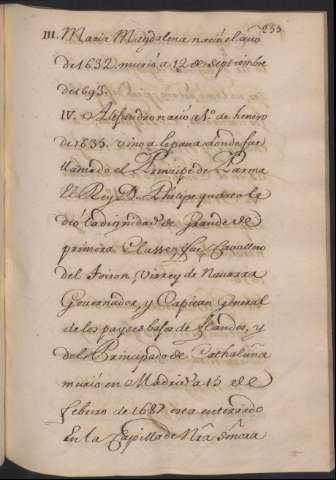 255
III. Maria Magdalena nacio el año
de 1632. murió a 12 de septiembre
de 1693.
IV. Alesandro nacio a 1º. de henero
de 1635. vino a España donde fue
llamado el Principe de Parma
El Rey D. Phelipe quarto le
dió la dignidad de Grande de
primera Classe, fue Cavallero
del Toison, Virrey de Navarra
Governador, y Capitan General
de los payses baxos de flandes, y
del Principado de Cathaluña
murió en Madrid a 15 de
febrero de 1687 esta enterrado
En la Capilla de Nra Señora